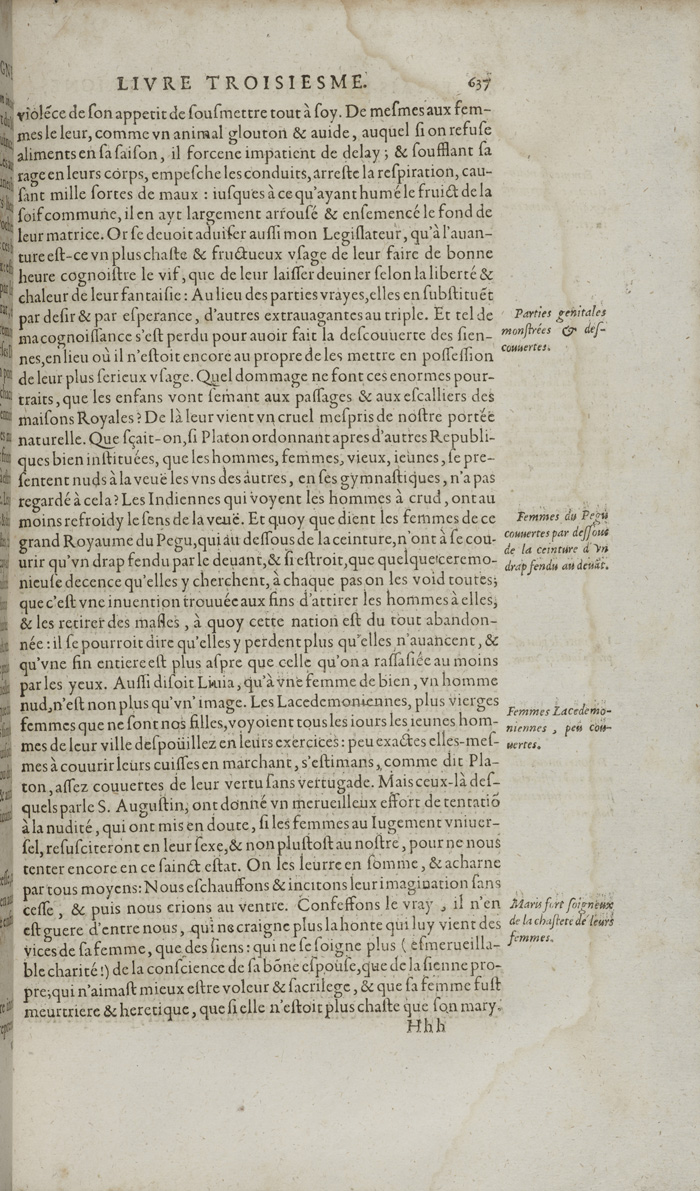 LIVRE TROISIESME. 637
violẽce de ſon appetit de ſouſmettre tout à ſoy. De meſmes aux fem-
mes le leur, comme vn animal glouton & auide, auquel ſi on refuſe
aliments en ſa ſaiſon, il forcene impatient de delay; & ſoufflant ſa
rage en leurs corps, empeſche les conduits, arreſte la reſpiration, cau-
ſant mille ſortes de maux : iuſques à ce qu'ayant humé le fruict de la
ſoif commune, il en ayt largement arrouſé & enſemencé le fond de
leur matrice. Or ſe deuoit aduiſer auſſi mon Legiſlateur, qu'à l'auan-
ture eſt-ce vn plus chaſte & fructueux vſage de leur faire de bonne
heure cognoiſtre le vif, que de leur laiſſer deuiner ſelon la liberté &
chaleur de leur fantaiſie : Au lieu des parties vrayes, elles en ſubſtituẽt
par deſir & par eſperance, d'autres extrauagantes au triple. Et tel de
ma cognoiſſance s'eſt perdu pour auoir fait la deſcouuerte des ſien-
nes, en lieu où il n'eſtoit encore au propre de les mettre en poſſeſſion
de leur plus ſerieux vſage. Quel dommage ne font ces enormes pour-
traits, que les enfans vont ſemant aux paſſages & aux eſcalliers des
maiſons Royales? De là leur vient vn cruel meſpris de noſtre portée
naturelle. Que ſçait-on, ſi Platon ordonnant apres d'autres Republi-
ques bien inſtituées, que les hommes, femmes, vieux, ieunes, ſe pre-
ſentent nuds à la veuë les vns des autres, en ſes gymnaſtiques, n'a pas
regardé à cela? Les Indiennes qui voyent les hommes à crud, ont au
moins refroidy le ſens de la veuë. Et quoy que dient les femmes de ce
grand Royaume du Pegu, qui au deſſous de la ceinture, n'ont à ſe cou-
urir qu'vn drap fendu par le deuant, & ſi eſtroit, que quelque ceremo-
nieuſe decence qu'elles y cherchent, à chaque pas on les void toutes;
que c'eſt vne inuention trouuée aux fins d'attirer les hommes à elles,
& les retirer des maſles, à quoy cette nation eſt du tout abandon-
née : il ſe pourroit dire qu'elles y perdent plus qu'elles n'auancent, &
qu'vne fin entiere eſt plus aſpre que celle qu'on a raſſaſiée au moins
par les yeux. Auſſi diſoit Liuia, qu'à vne femme de bien, vn homme
nud, n'eſt non plus qu'vn' image. Les Lacedemoniennes, plus vierges
femmes que ne ſont nos filles, voyoient tous les iours les ieunes hom-
mes de leur ville deſpoüillez en leurs exercices : peu exactes elles-meſ-
mes à couurir leurs cuiſſes en marchant, s'eſtimans, comme dit Pla-
ton, aſſez couuertes de leur vertu ſans vertugade. Mais ceux-là deſ-
quels parle S. Auguſtin, ont donné vn merueilleux effort de tentatiõ
à la nudité, qui ont mis en doute, ſi les femmes au Iugement vniuer-
ſel, reſuſciteront en leur ſexe, & non pluſtoſt au noſtre, pour ne nous
tenter encore en ce ſainct eſtat. On les leurre en ſomme, & acharne
par tous moyens: Nous eſchauffons & incitons leur imagination ſans
ceſſe, & puis nous crions au ventre. Confeſſons le vray, il n'en
eſt guere d'entre nous, qui ne craigne plus la honte qui luy vient des
vices de ſa femme, que des ſiens : qui ne ſe ſoigne plus ( eſmerueilla-
ble charité!) de la conſcience de ſa bõne eſpouſe, que de la ſienne pro-
pre; qui n'aimaſt mieux eſtre voleur & ſacrilege, & que ſa femme fuſt
meurtriere & heretique, que ſi elle n'eſtoit plus chaſte que ſon mary.
Hhh
Parties genitales
monſtrées & deſ-
couuertes.
Femmes du Pegu
couuertes par deſſous
de la ceinture d'vn
drap fendu au deuãt.
Femmes Lacedemo-
niennes, peu cou-
uertes.
Maris fort ſoigneux
de la chaſteté de leurs
femmes.